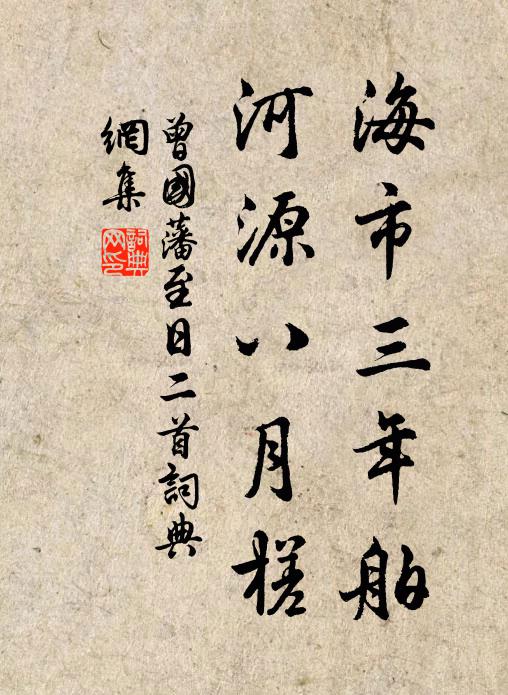 海市三年舶
河源八月槎
曾國藩至日二首詞典
網集
詞典
网印